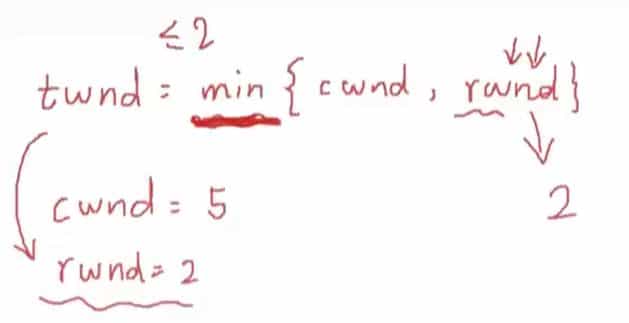 ≤2
twnd = min { cwnd , rwnd }
cwnd = 5
2
rwnd = 2